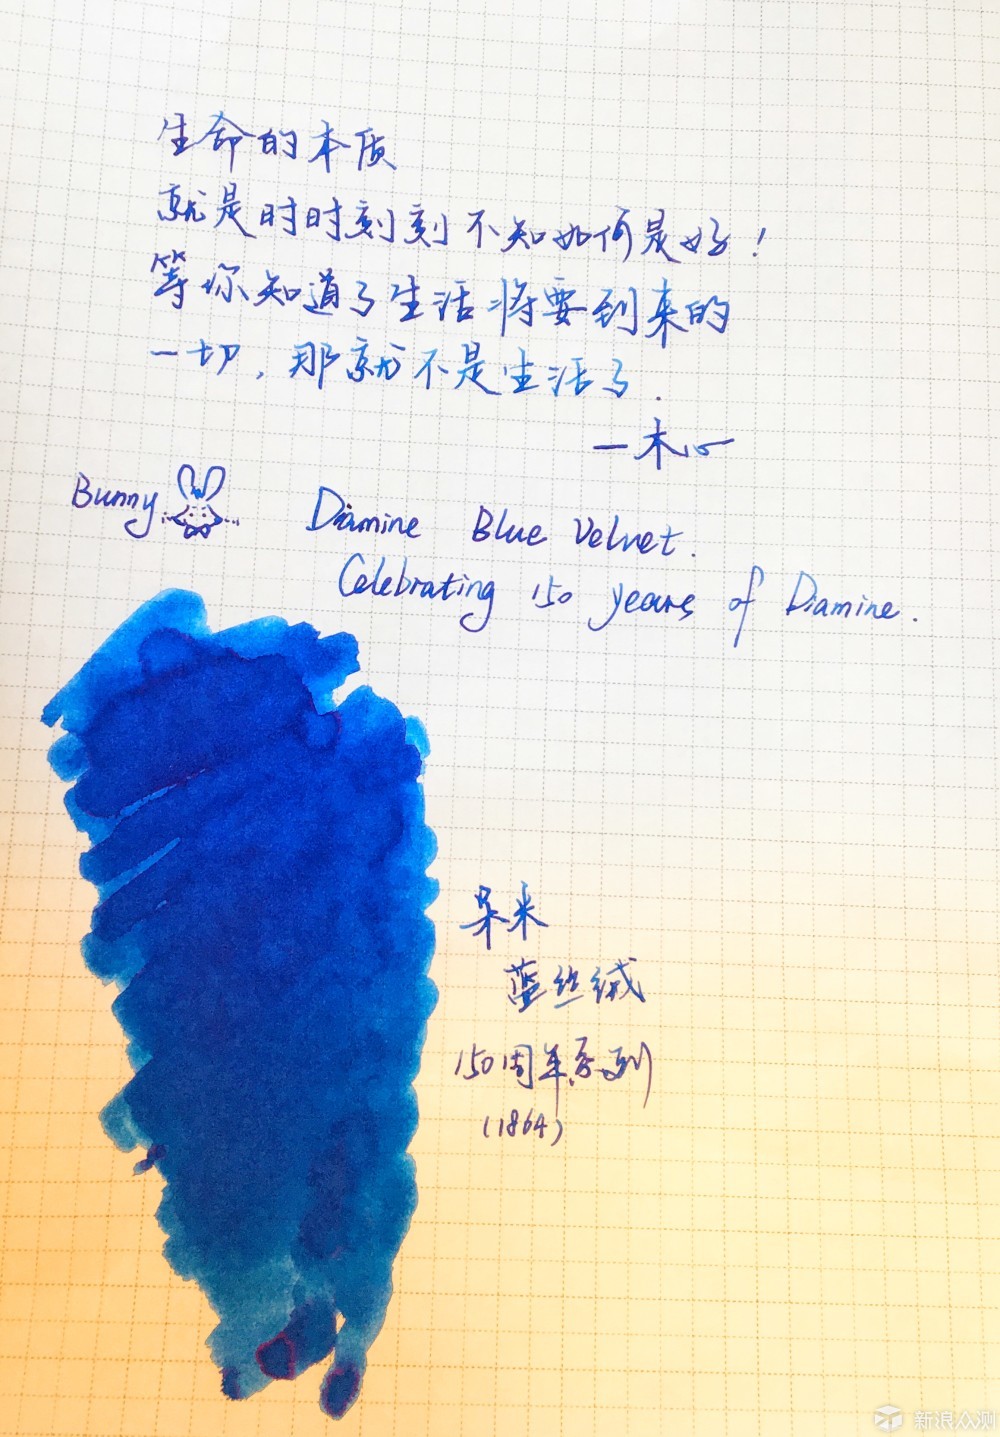 生命的本质
就是时时刻刻不知如何是好！
等你知道了生活将要到来的
一切，那就不是生活了.
—木心
Bunny
Diamine Blue Velvet.
Celebrating 150 years of Diamine.
呆米
蓝丝绒
150周年系列
(1864)
新浪众测